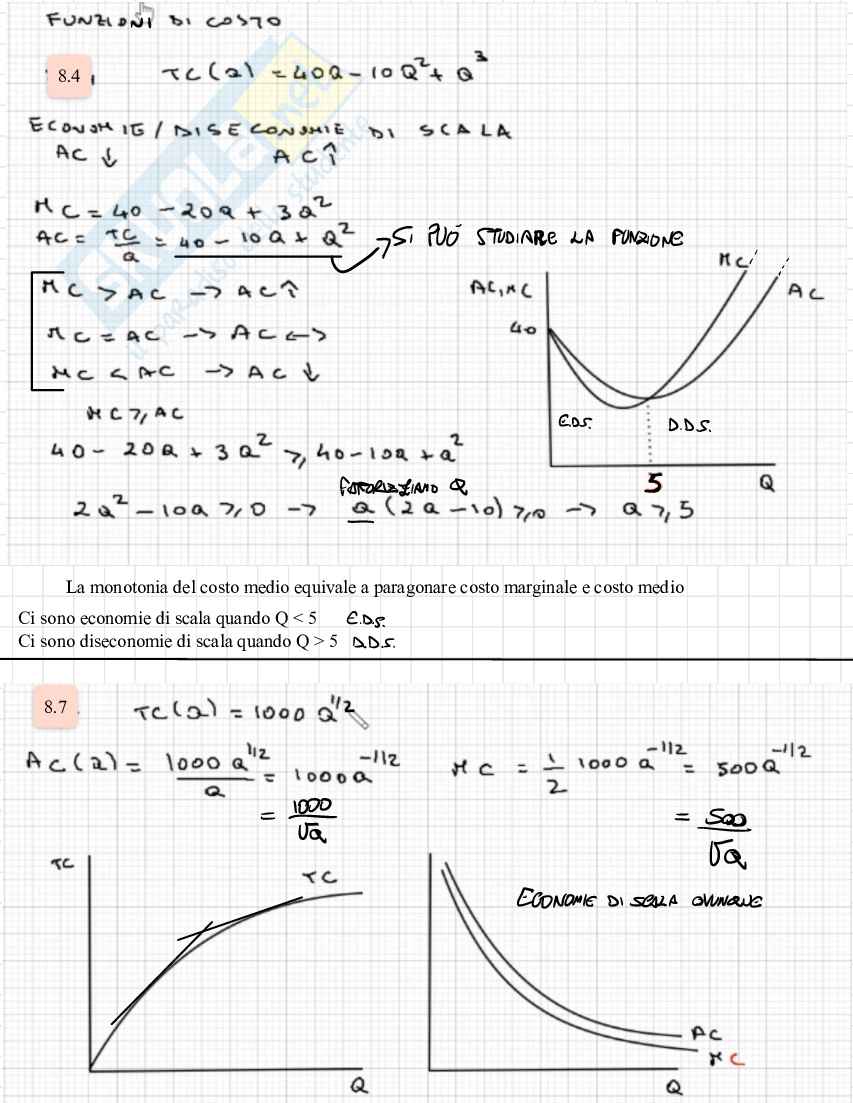 FUNZIONI DI COSTO
8.4 TC(Q) = 40Q - 10Q² + Q³
ECONOMIE / DISECONOMIE DI SCALA
AC ↓ AC ↑
MC = 40 - 20Q + 3Q²
AC = TC/Q = 40 - 10Q + Q² → SI PUÓ STUDIARE LA FUNZIONE
MC > AC → AC ↑
MC = AC → AC ↔
MC < AC → AC ↓
AC, MC
40
MC
AC
E.D.S. D.D.S.
5 Q
MC ≥ AC
40 - 20Q + 3Q² ≥ 40 - 10Q + Q²
FATTORIZZIAMO Q
2Q² - 10Q ≥ 0 → Q (2Q - 10) ≥ 0 → Q ≥ 5
La monotonia del costo medio equivale a paragonare costo marginale e costo medio
Ci sono economie di scala quando Q < 5 E.D.S.
Ci sono diseconomie di scala quando Q > 5 D.D.S.
8.7 TC(Q) = 1000 Q^1/2
AC(Q) = 1000 Q^1/2 / Q = 1000 Q^-1/2
= 1000 / √Q
MC = 1/2 1000 Q^-1/2 = 500 Q^-1/2
= 500 / √Q
TC
TC
Q
ECONOMIE DI SCALA OVUNQUE
AC
MC
Q
SKUOLA.net